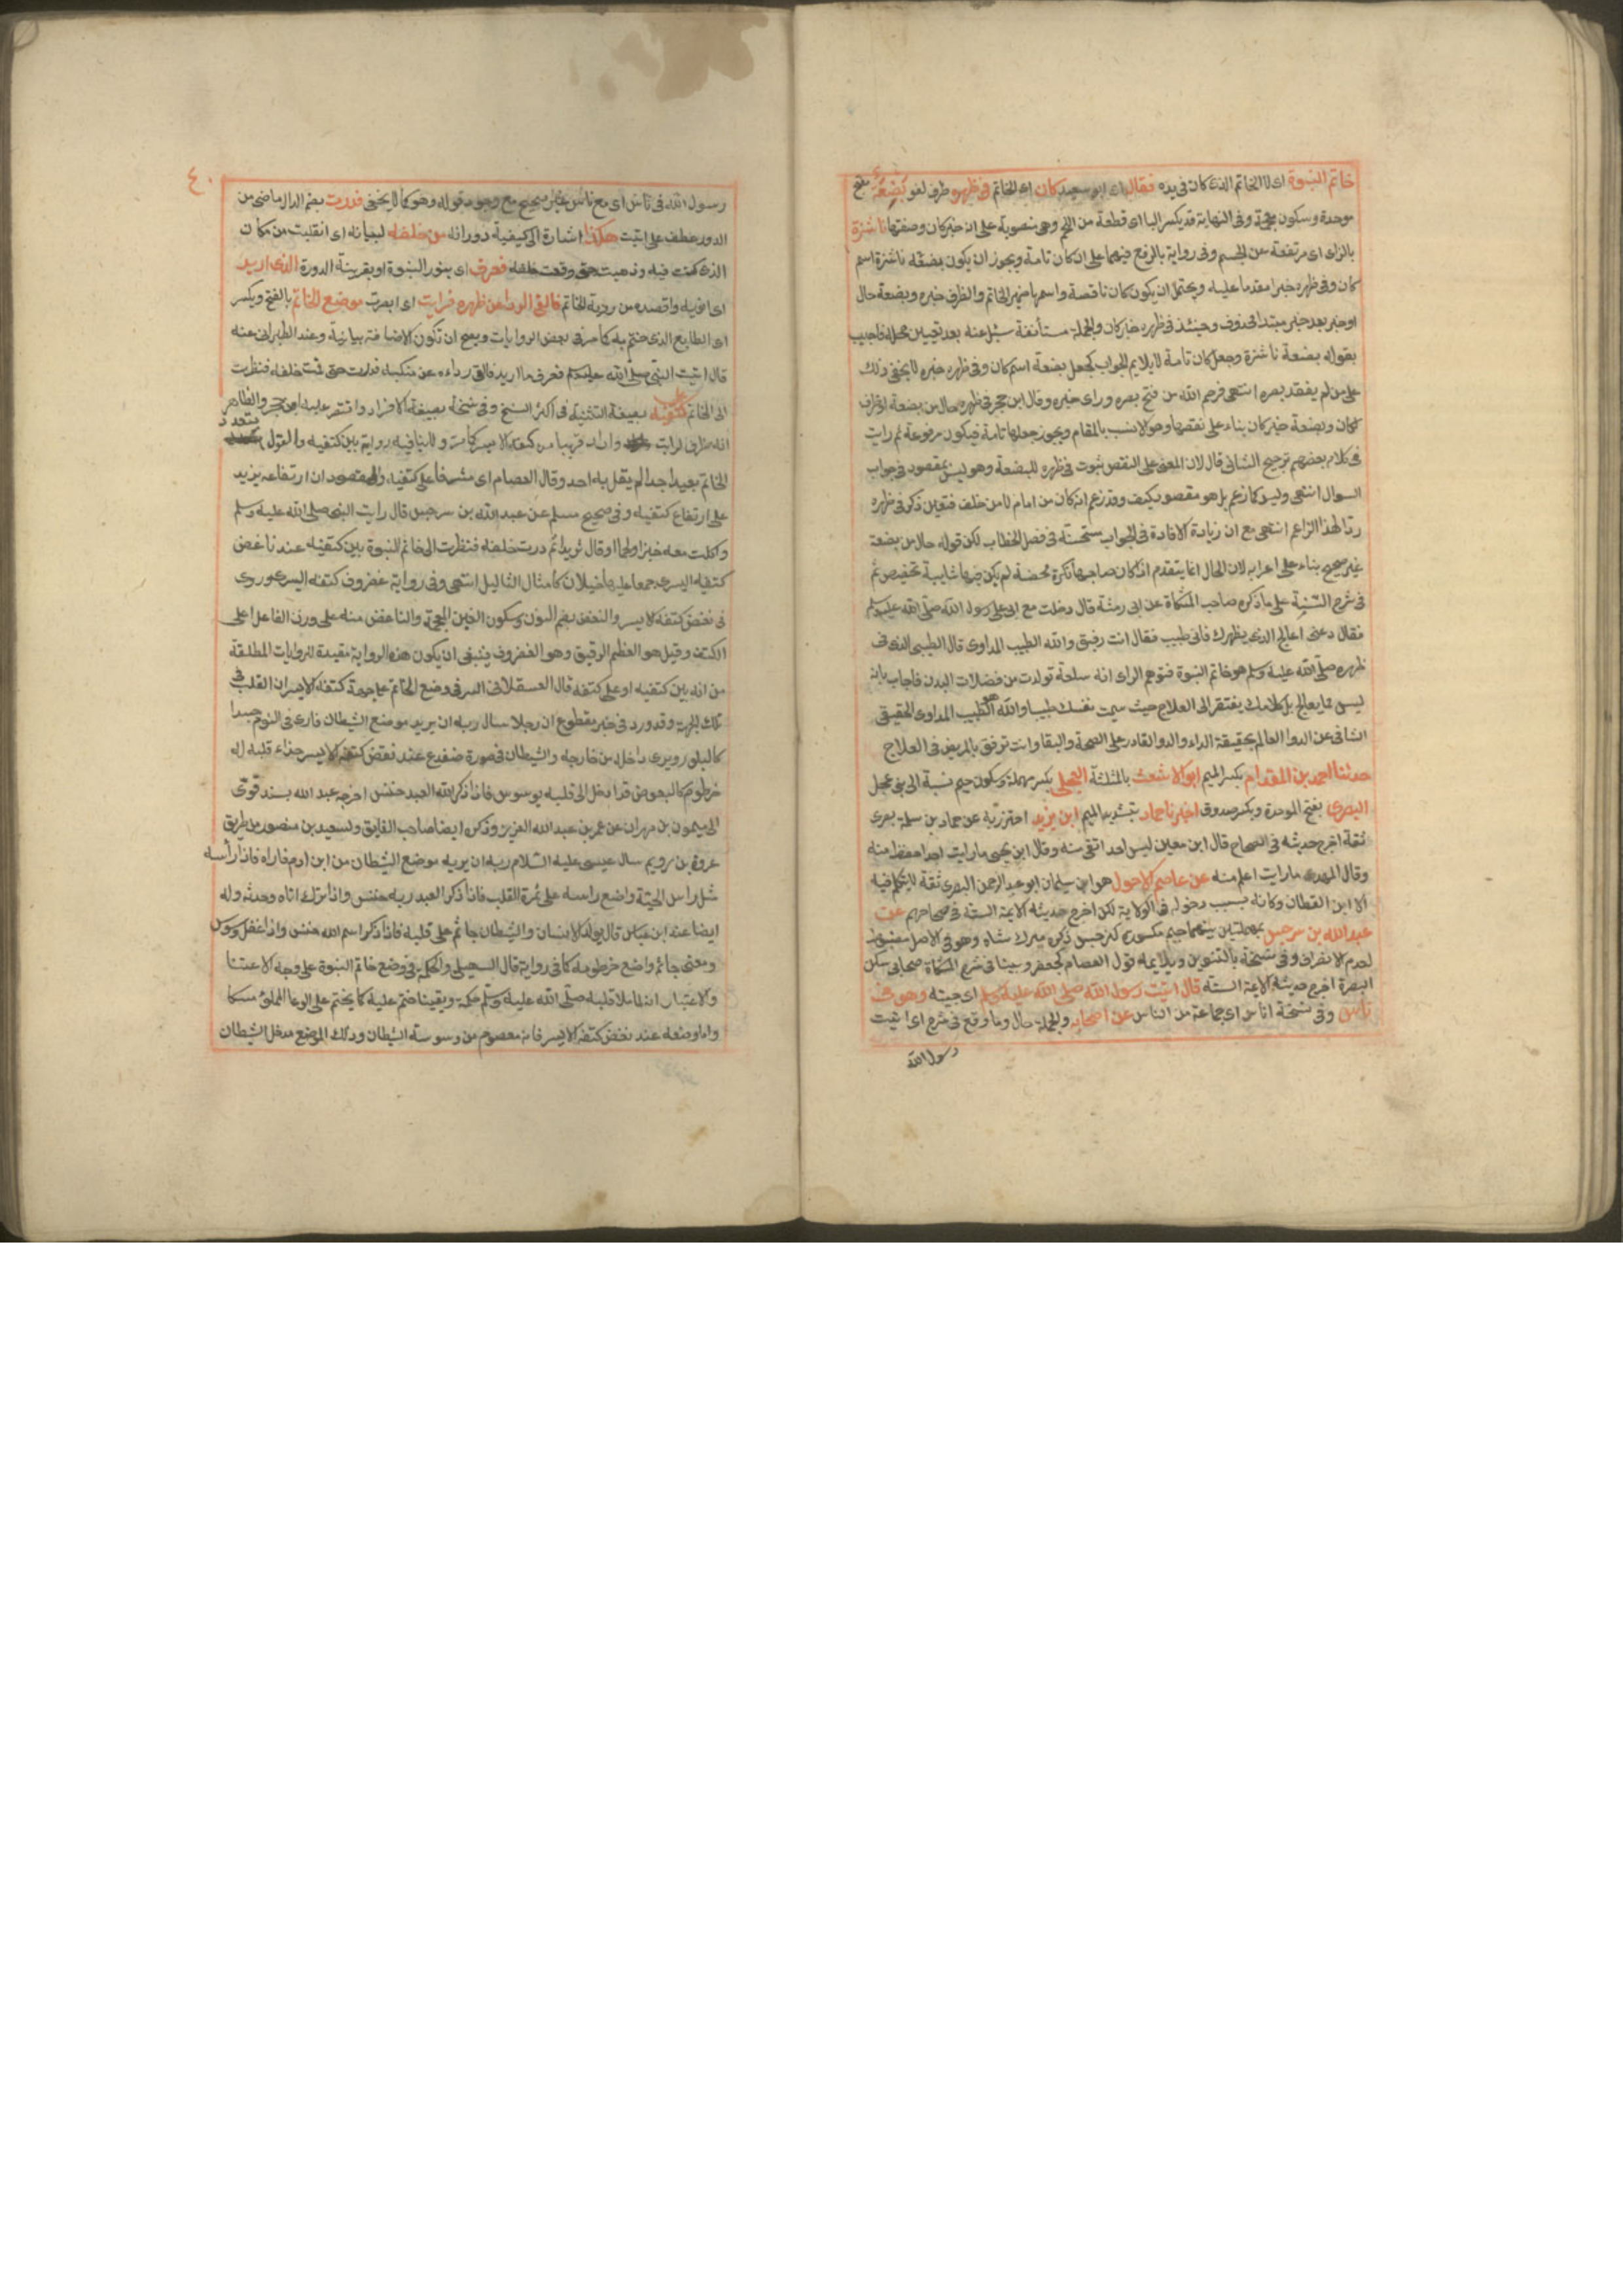 خاتم النبوة اى لا الخاتم الذى كان فى يده فقال اى ابو سعيد كان اى الخاتم فى ظهره ظرف لغو بضعة بفتح
موحدة وسكون معجمة وفى النهاية قد يكسر الباء اى قطعة من اللحم وهى منصوبة على انه خبر كان وصفتها ناشزة
بالزاى اى مرتفعة عن الجسم وفى رواية بالرفع فيهما على ان كان تامة ويجوز ان يكون بضعة ناشزة اسم
كان وفى ظهره خبرا مقدما عليه ويحتمل ان يكون كان ناقصة واسمها ضمير الخاتم والظرف خبره وبضعة حال
او خبر بعد خبر مبتدا محذوف وحينئذ فى ظهره خبر كان والجملة مستأنفة سئل عنه بعد تعيين محله فاجيب
بقوله بضعة ناشزة وجعل كان تامة لا يلايم الجواب كجعل بضعة اسم كان وفى ظهره خبره لا يخفى ذلك
على من لم يفقد بصره انتهى فرحم الله من فتح بصره وراى خبره وقال ابن حجر فى ظهره حال من بضعة او ظرف
لكان وبضعة خبر كان بناء على نقصها وهو الانسب بالمقام ويجوز جعلها تامة فيكون مرفوعة ثم رايت
فى كلام بعضهم ترجيح الثانى قال لان المعنى على النقص ثبوت فى ظهره للبضعة وهو ليس بمقصود فى جواب
السوال انتهى وليس كما زعم بل هو مقصود كيف وقد زعم انه كان من امام لا من خلف فتعين ذكر فى ظهره
ردا لهذا الزاعم انتهى مع ان زيادة الافادة فى الجواب مستحسنة فى فصل الخطاب لكن قوله حال من بضعة
غير صحيح بناء على اعرابه لان الحال انما يتقدم اذا كان صاحبها نكرة محضة لم يكن فيها شايبة تخصيص ثم
فى شرح السنة على ما ذكره صاحب المشكاة عن ابى رمثة قال دخلت مع ابى على رسول الله صلى الله عليه وسلم
فقال دعنى اعالج الذى بظهرك فانى طبيب فقال انت رفيق والله الطبيب المداوى قال الطيبى الذى فى
ظهره صلى الله عليه وسلم هو خاتم النبوة فتوهم الراى انه سلعة تولدت من فضلات البدن فاجاب بانه
ليس مما يعالج بل كلامك يفتقر الى العلاج حيث سميت نفسك طبيبا والله هو الطبيب المداوى الحقيقى
الشافى عن الدوا العالم بحقيقة الداء والدوا القادر على الصحة والبقا وانت ترفق بالمريض فى العلاج
حدثنا احمد بن المقدام بكسر الميم ابو الاشعث بالمثلثة العجلى بكسر مهملة وسكون جيم نسبة الى بنى عجل
البصرى بفتح الموحدة وبكسر صدوق اخبرنا حماد بتشديد الميم ابن يزيد احترز به عن حماد بن سلمة بصرى
ثقة اخرج حديثه فى الصحاح قال ابن معين ليس احد اتقى منه وقال ابن يحيى ما رايت احدا احفظ منه
وقال المهدى ما رايت اعلم منه عن عاصم الاحول هو ابن سليمان ابو عبد الرحمن البصرى ثقة لا يتكلم فيه
الا ابن القطان وكانه بسبب دخوله فى الولاية لكن اخرج حديثه الايمة الستة فى صحاحهم عن
عبد الله بن سرجس بمهملتين بينهما جيم مكسورة كنرجس ذكره ميرك شاه وهو فى الاصل مضبوط
لعدم الانصراف وفى نسخة بالتنوين ويلايمه قول العصام كجعفر وبينا فى شرح المشكاة صحابى سكن
البصرة اخرج حديثه الايمة الستة قال اتيت رسول الله صلى الله عليه وسلم اى جيته وهو فى
ناس وفى نسخة اناس اى جماعة من الناس من اصحابه والجملة حال وما وقع فى شرح اى اتيت
رسول الله
٤٠
رسول الله فى ناس اى مع ناس غير صحيح مع وجود قوله وهو كما لا يخفى فدرت بضم الدال ماضى من
الدور عطف على اتيت هكذا اشارة الى كيفية دورانه من خلفه لبيانه اى انقلبت من مكان
الذى كنت فيه وذهبت حتى وقفت خلفه فعرف اى بنور النبوة او بقرينة الدورة الذى اريد
اى انويه واقصده من روية الخاتم فالقى الرداء عن ظهره فرايت اى ابصرت موضع الخاتم بالفتح ويكسر
اى الطابع الذى ختم به كما مر فى بعض الروايات ويصح ان تكون الاضافة بيانية وعند الطبرانى عنه
قال اتيت النبى صلى الله عليه وسلم فعرف ما اريد فالقى رداءه عن منكبه فدرت حتى قمت خلفه فنظرت
الى الخاتم على كتفيه بصيغة التثنية فى اكثر النسخ وفى نسخة بصيغة الافراد واقتصر عليه ابن حجر والظاهر
انه طرف لرايت وانه قريبا من كتفه الايسر كما مر ولا ينافيه رواية بين كتفيه والقول بتعدد
الخاتم بعيد جدا لم يقل به احد وقال العصام اى مشرفا على كتفيه والمقصود ان ارتفاعه يزيد
على ارتفاع كتفيه وفى صحيح مسلم عن عبد الله بن سرجس قال رايت النبى صلى الله عليه وسلم
واكلت معه خبزا ولحما او قال ثريدا ثم درت خلفه فنظرت الى خاتم النبوة بين كتفيه عند ناغض
كتفه اليسرى جمعا عليها خيلان كامثال الثاليل انتهى وفى رواية غضروف كتفه اليسرى وروى
فى نغض كتفه الايسر والنغض بضم النون وسكون الغين المعجمة والناغض منه على وزن الفاعل اعلى
الكتف وقيل هو العظم الرقيق وهو الغضروف فينبغى ان يكون هذه الرواية مقيدة للروايات المطلقة
من انه بين كتفيه او على كتفه قال العسقلانى السر فى وضع الخاتم على جهة كتفه الايسر ان القلب فى
تلك الجهة وقد ورد فى خبر مقطوع ان رجلا سال ربه ان يريه موضع الشيطان فارى فى النوم جسدا
كالبلور ويرى داخله من خارجه والشيطان فى صورة ضفدع عند نغض كتفه الايسر حذاء قلبه له
خرطوم كالبعوض قد ادخل الى قلبه يوسوس فاذا ذكر الله العبد خنس اخرجه عبد الله بسند قوى
الى ميمون بن مهران عن عمر بن عبد الله العزيز وذكره ايضا صاحب الفايق ولسعيد بن منصور من طريق
عروة بن رويم سال عيسى عليه السلام ربه ان يريه موضع الشيطان من ابن ادم فاراه فاذا رأسه
مثل راس الحية واضع راسه على ثمرة القلب فاذا ذكر العبد ربه خنس واذا ترك اتاه وحدثه وله
ايضا عند ابن عباس قال يولد الانسان والشيطان جاثم على قلبه فاذا ذكر اسم الله خنس واذا غفل وسوس
ومعنى جاثم واضع خرطومه كما فى رواية قال السهيلى والحكمة فى وضع خاتم النبوة على وجه الاعتنا
والاعتبار انه لما ملا قلبه صلى الله عليه وسلم حكمة ويقينا ختم عليه كما يختم على الوعا المملو مسكا
واما وضعه عند نغض كتفه الايسر فانه معصوم من وسوسة الشيطان وذلك الموضع مدخل الشيطان